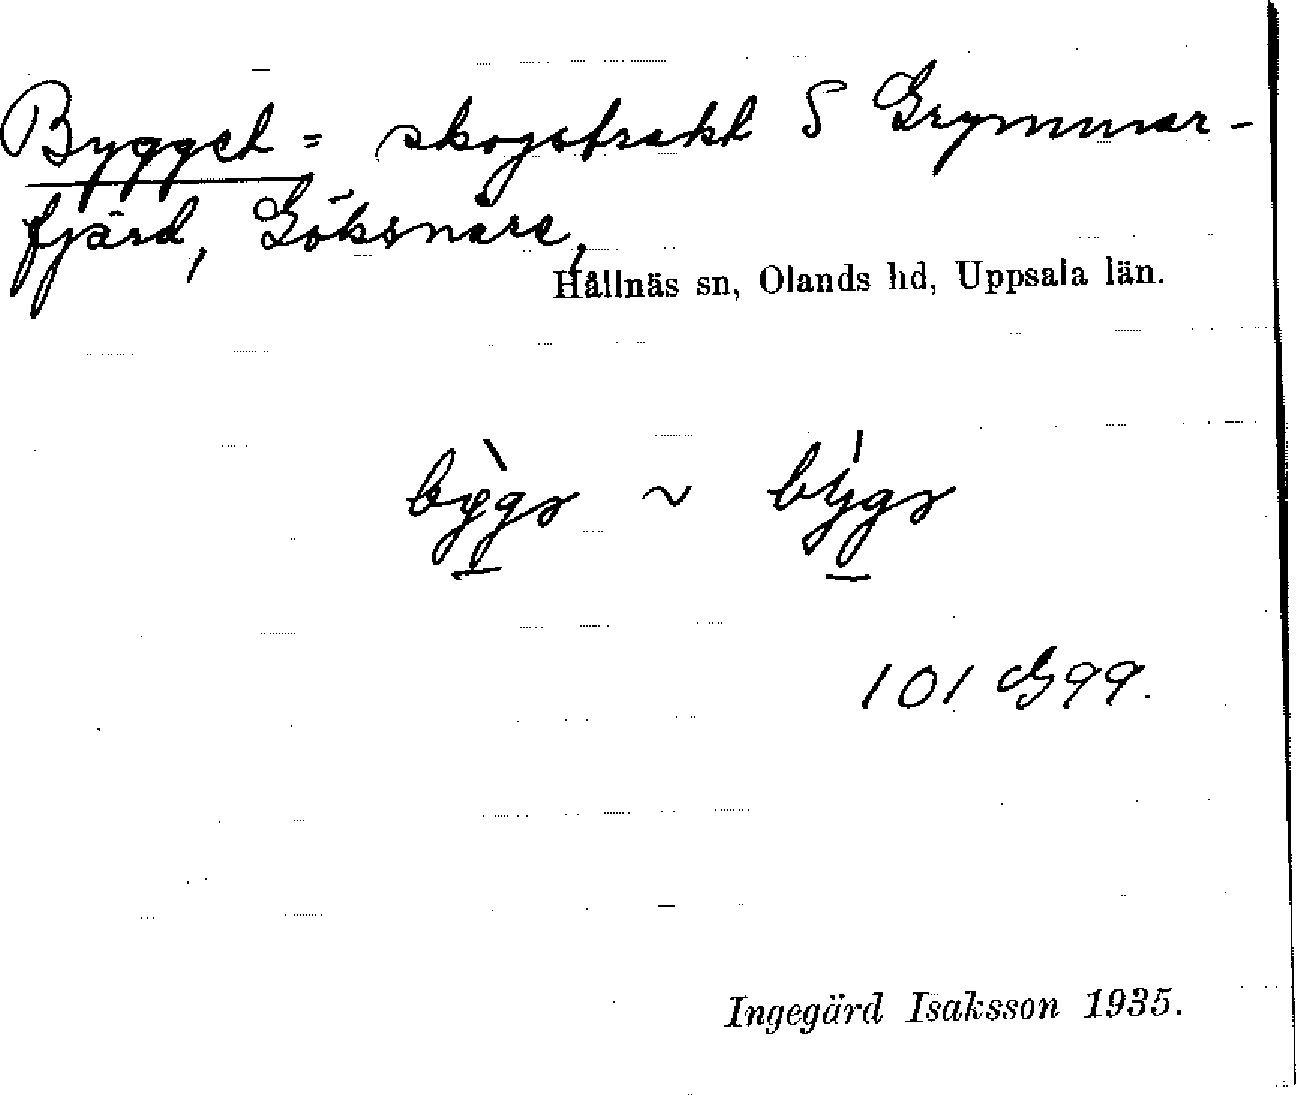 Bygget = skogstrakt S Grymmar-
fjärd, Göksnåre,
Hållnäs sn, Olands hd, Uppsala län.
by̖gə ~ by̍gə
101 G99.
Ingegärd Isaksson 1935.